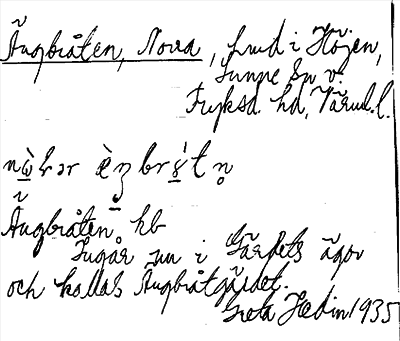 Ängbråten, Norra, hmd i Höjen,
Sunne sn v.
Fryksd. hd, Värml. l.
Ängbråten kb
Ingår nu i Gärdets ägor
och kallas Ängbråtgärdet.
Greta Hedin 1935